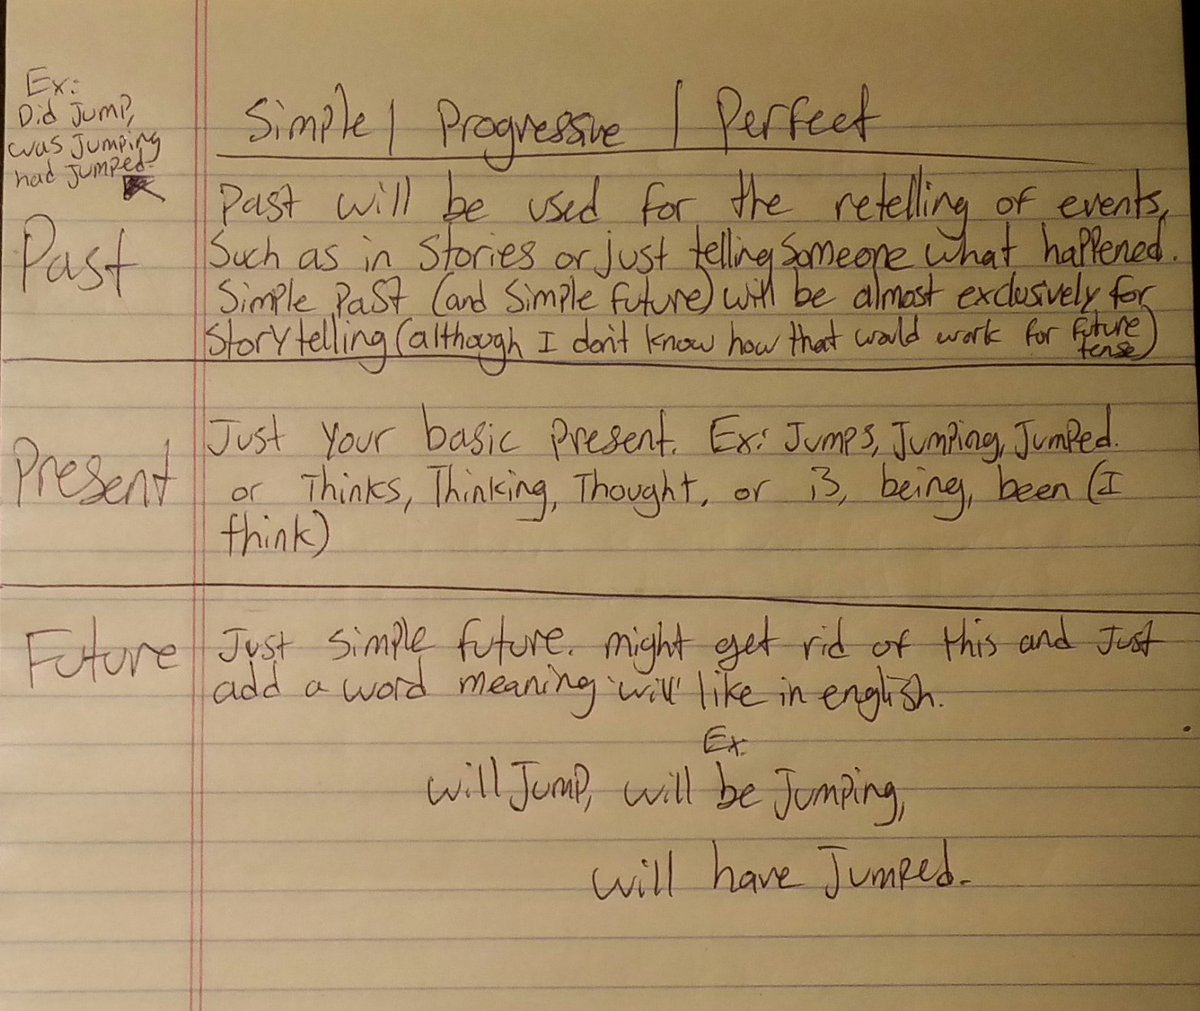 Ex:
Did Jump,
was Jumping
had Jumped.
Simple | Progressive | Perfect
Past
Past will be used for the retelling of events,
Such as in Stories or just telling Someone what happened.
Simple Past (and Simple future) will be almost exclusively for
Storytelling (although I don't know how that would work for future tense)
Present
Just your basic present. Ex: Jumps, Jumping, Jumped.
or Thinks, Thinking, Thought, or is, being, been (I
think)
Future
Just simple future. might get rid of this and Just
add a word meaning 'will' like in english.
Ex:
will Jump, will be Jumping,
will have Jumped.